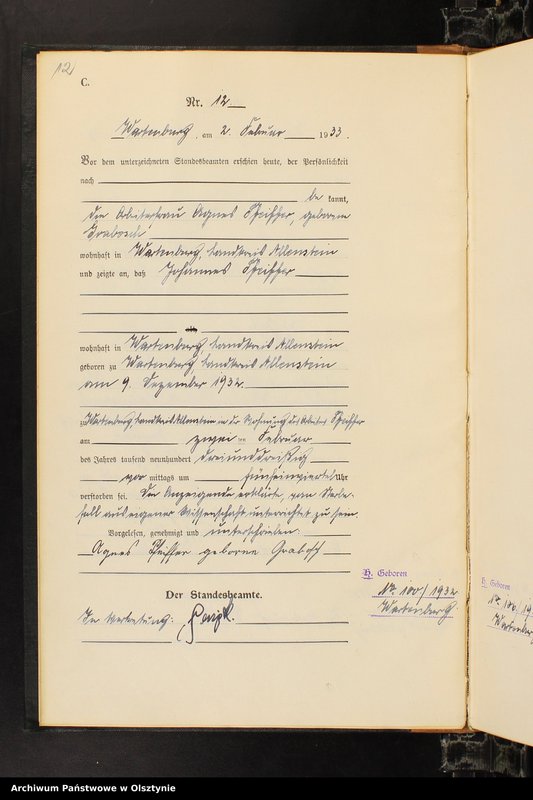 12
C.
Nr. 12
Wartenburg, am 2. Februar 1933.
Vor dem unterzeichneten Standesbeamten erschien heute, der Persönlichkeit
nach
be kannt,
die Arbeiterfrau Agnes Pfeiffer, geborene
Grabosch
wohnhaft in Wartenburg, Landkreis Allenstein
und zeigte an, daß Johannes Pfeiffer
wohnhaft in Wartenburg, Landkreis Allenstein
geboren zu Wartenburg, Landkreis Allenstein
am 9. Dezember 1932
zu Wartenburg, Landkreis Allenstein in der Wohnung des Arbeiters Pfeiffer
am zwei ten Februar
des Jahres tausend neunhundert dreiunddreißig
vor mittags um fünfeinviertel Uhr
verstorben sei. Die Anzeigende erklärte, vom Sterbe-
fall aus eigener Wissenschaft unterrichtet zu sein.
Vorgelesen, genehmigt und unterschrieben
Agnes Pfeiffer geborene Grabosch
Der Standesbeamte.
In Vertretung:
H. Geboren
Nr. 100/1932
Wartenburg
H. Geboren
Archiwum Państwowe w Olsztynie